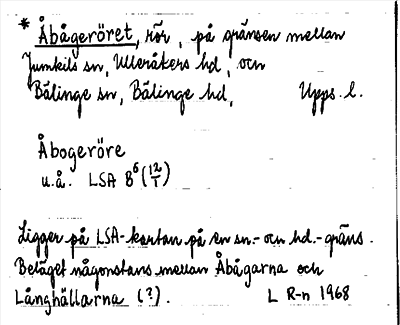 * Åbågeröret, rör, på gränsen mellan
Jumkils sn, Ulleråkers hd, och
Bälinge sn, Bälinge hd, Upps. l.
Åbogeröre
u.å. LSA B⁶ (12/1)
Ligger på LSA-kartan på en sn.- och hd.-gräns.
Beläget någonstans mellan Åbågarna och
Långhällarna (?). L R-n 1968